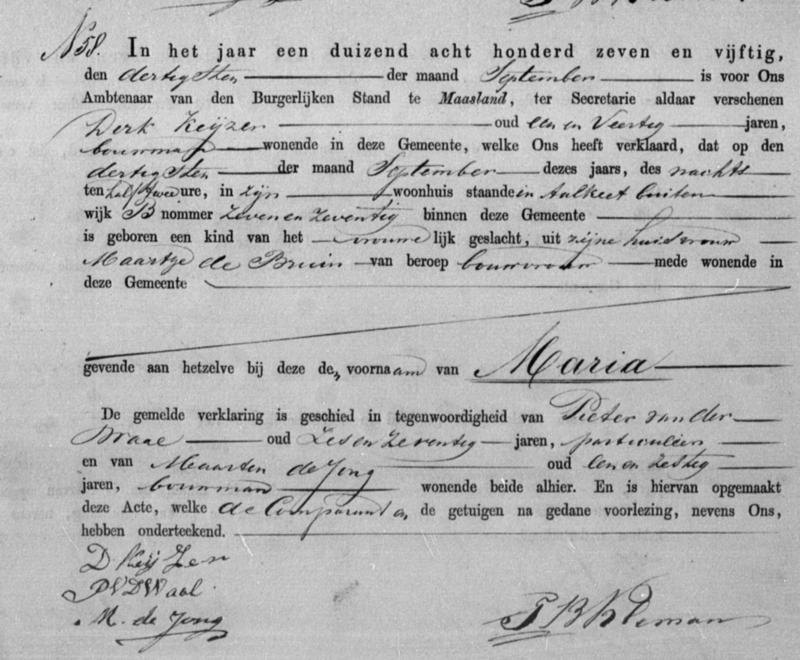 N 58. In het jaar een duizend acht honderd zeven en vijftig,
den dertigsten der maand September is voor Ons
Ambtenaar van den Burgerlijken Stand te Maasland, ter Secretarie aldaar verschenen
Derk Keijzer oud een en Veertig jaren,
bouwman wonende in deze Gemeente, welke Ons heeft verklaard, dat op den
dertigsten der maand September dezes jaars, des nachts
ten half twee ure, in zijn woonhuis staande in Aalkeet buiten
wijk B nommer zeven en zeventig binnen deze Gemeente
is geboren een kind van het vrouwelijk geslacht, uit zijne huisvrouw
Maartje de Bruin van beroep bouwvrouw mede wonende in
deze Gemeente
gevende aan hetzelve bij deze de voornaam van Maria
De gemelde verklaring is geschied in tegenwoordigheid van Pieter van der
Waal oud Zes en Zeventig jaren, particulier
en van Maarten de Jong oud een en zestig
jaren, bouwman wonende beide alhier. En is hiervan opgemaakt
deze Acte, welke de Comparant en de getuigen na gedane voorlezing, nevens Ons,
hebben onderteekend.
D. Keijzer
PVDWaal
M. de Jong